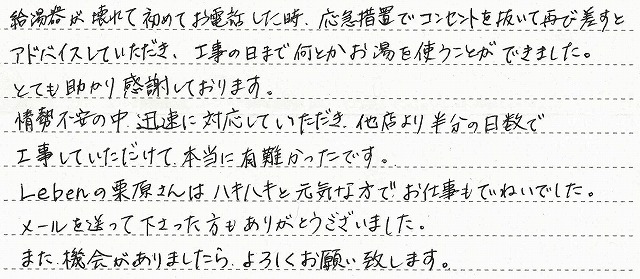 給湯器が壊れて初めてお電話した時、応急措置でコンセントを抜いて再び差すと
アドバイスしていただき、工事の日まで何とかお湯を使うことができました。
とても助かり感謝しております。
情勢不安の中、迅速に対応していただき、他店より半分の日数で
工事していただけて本当に有難かったです。
Lebenの栗原さんはハキハキと元気な方でお仕事もていねいでした。
メールを送って下さった方もありがとうございました。
また機会がありましたら、よろしくお願い致します。